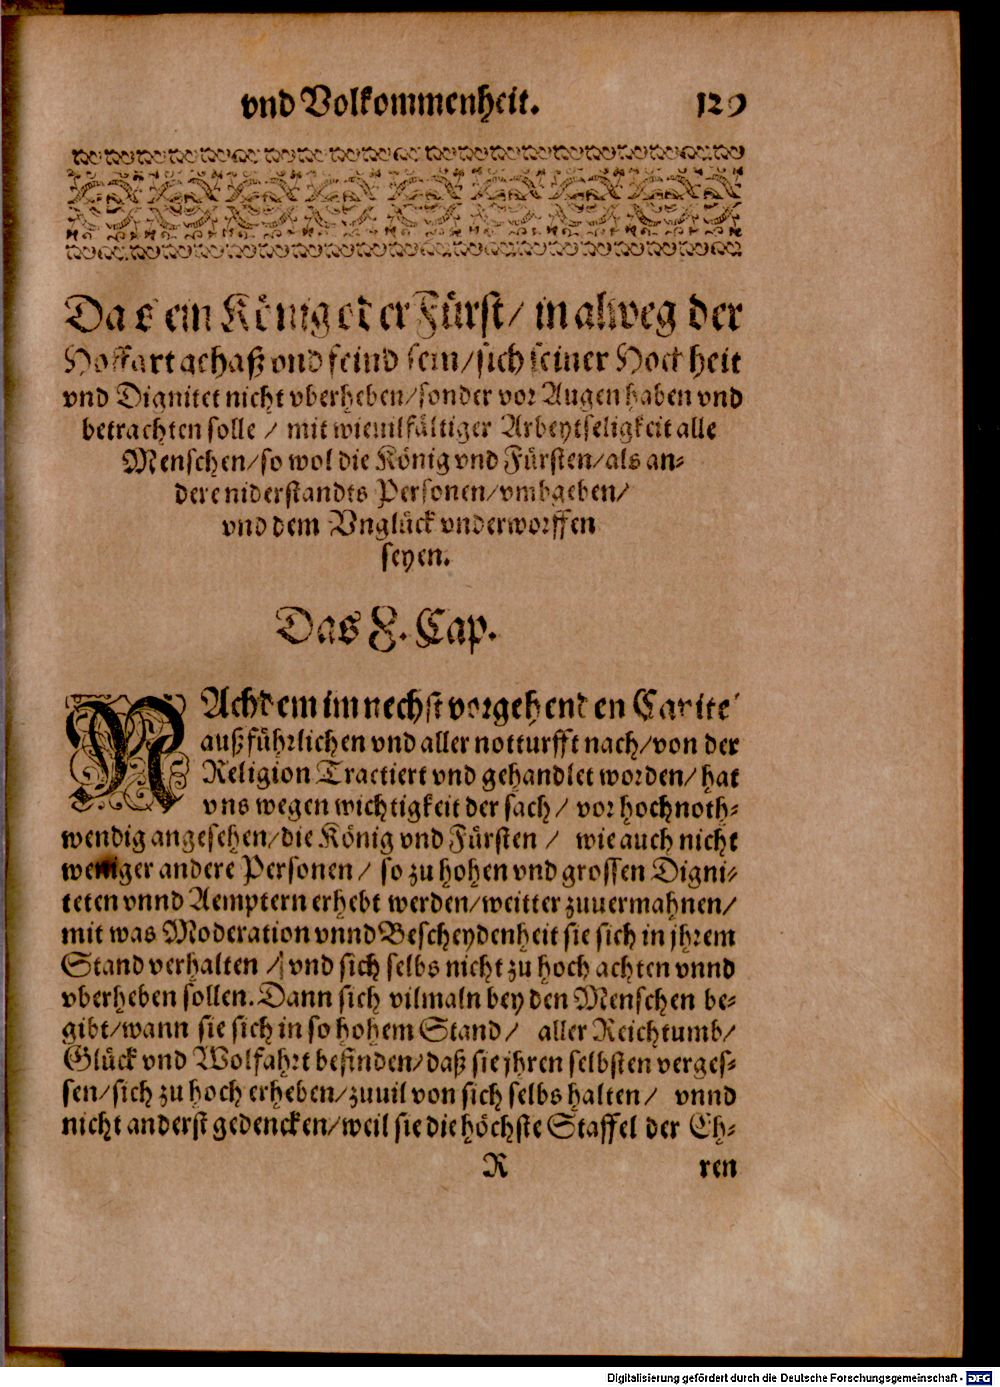 vnd Volkommenheit. 129
Das ein König oder Fürst/ in alweg der
Hoffart gehaß vnd feind sein/sich seiner Hochheit
vnd Dignitet nicht vberheben/sonder vor Augen haben vnd
betrachten solle / mit wieuilfältiger Arbeytseligkeit alle
Menschen/so wol die König vnd Fürsten/als an-
dere niderstandts Personen/vmbgeben/
vnd dem Vnglück vnderworffen
seyen.
Das 8. Cap.
NAchdem im nechst vorgehenden Capite
außführlichen vnd aller notturfft nach/von der
Religion Tractiert vnd gehandlet worden/hat
vns wegen wichtigkeit der sach / vor hochnoth-
wendig angesehen/die König vnd Fürsten / wie auch nicht
weniger andere Personen / so zu hohen vnd grossen Digni-
teten vnnd Aemptern erhebt werden/weitter zuuermahnen/
mit was Moderation vnnd Bescheydenheit sie sich in jhrem
Stand verhalten / vnd sich selbs nicht zu hoch achten vnnd
vberheben sollen. Dann sich vilmaln bey den Menschen be-
gibt/wann sie sich in so hohem Stand / aller Reichtumb/
Glück vnd Wolfahrt befinden/daß sie jhren selbsten verges-
sen/sich zu hoch erheben/zuuil von sich selbs halten / vnnd
nicht anderst gedencken/weil sie die höchste Staffel der Eh-
R ren
Digitalisierung gefördert durch die Deutsche Forschungsgemeinschaft - DFG